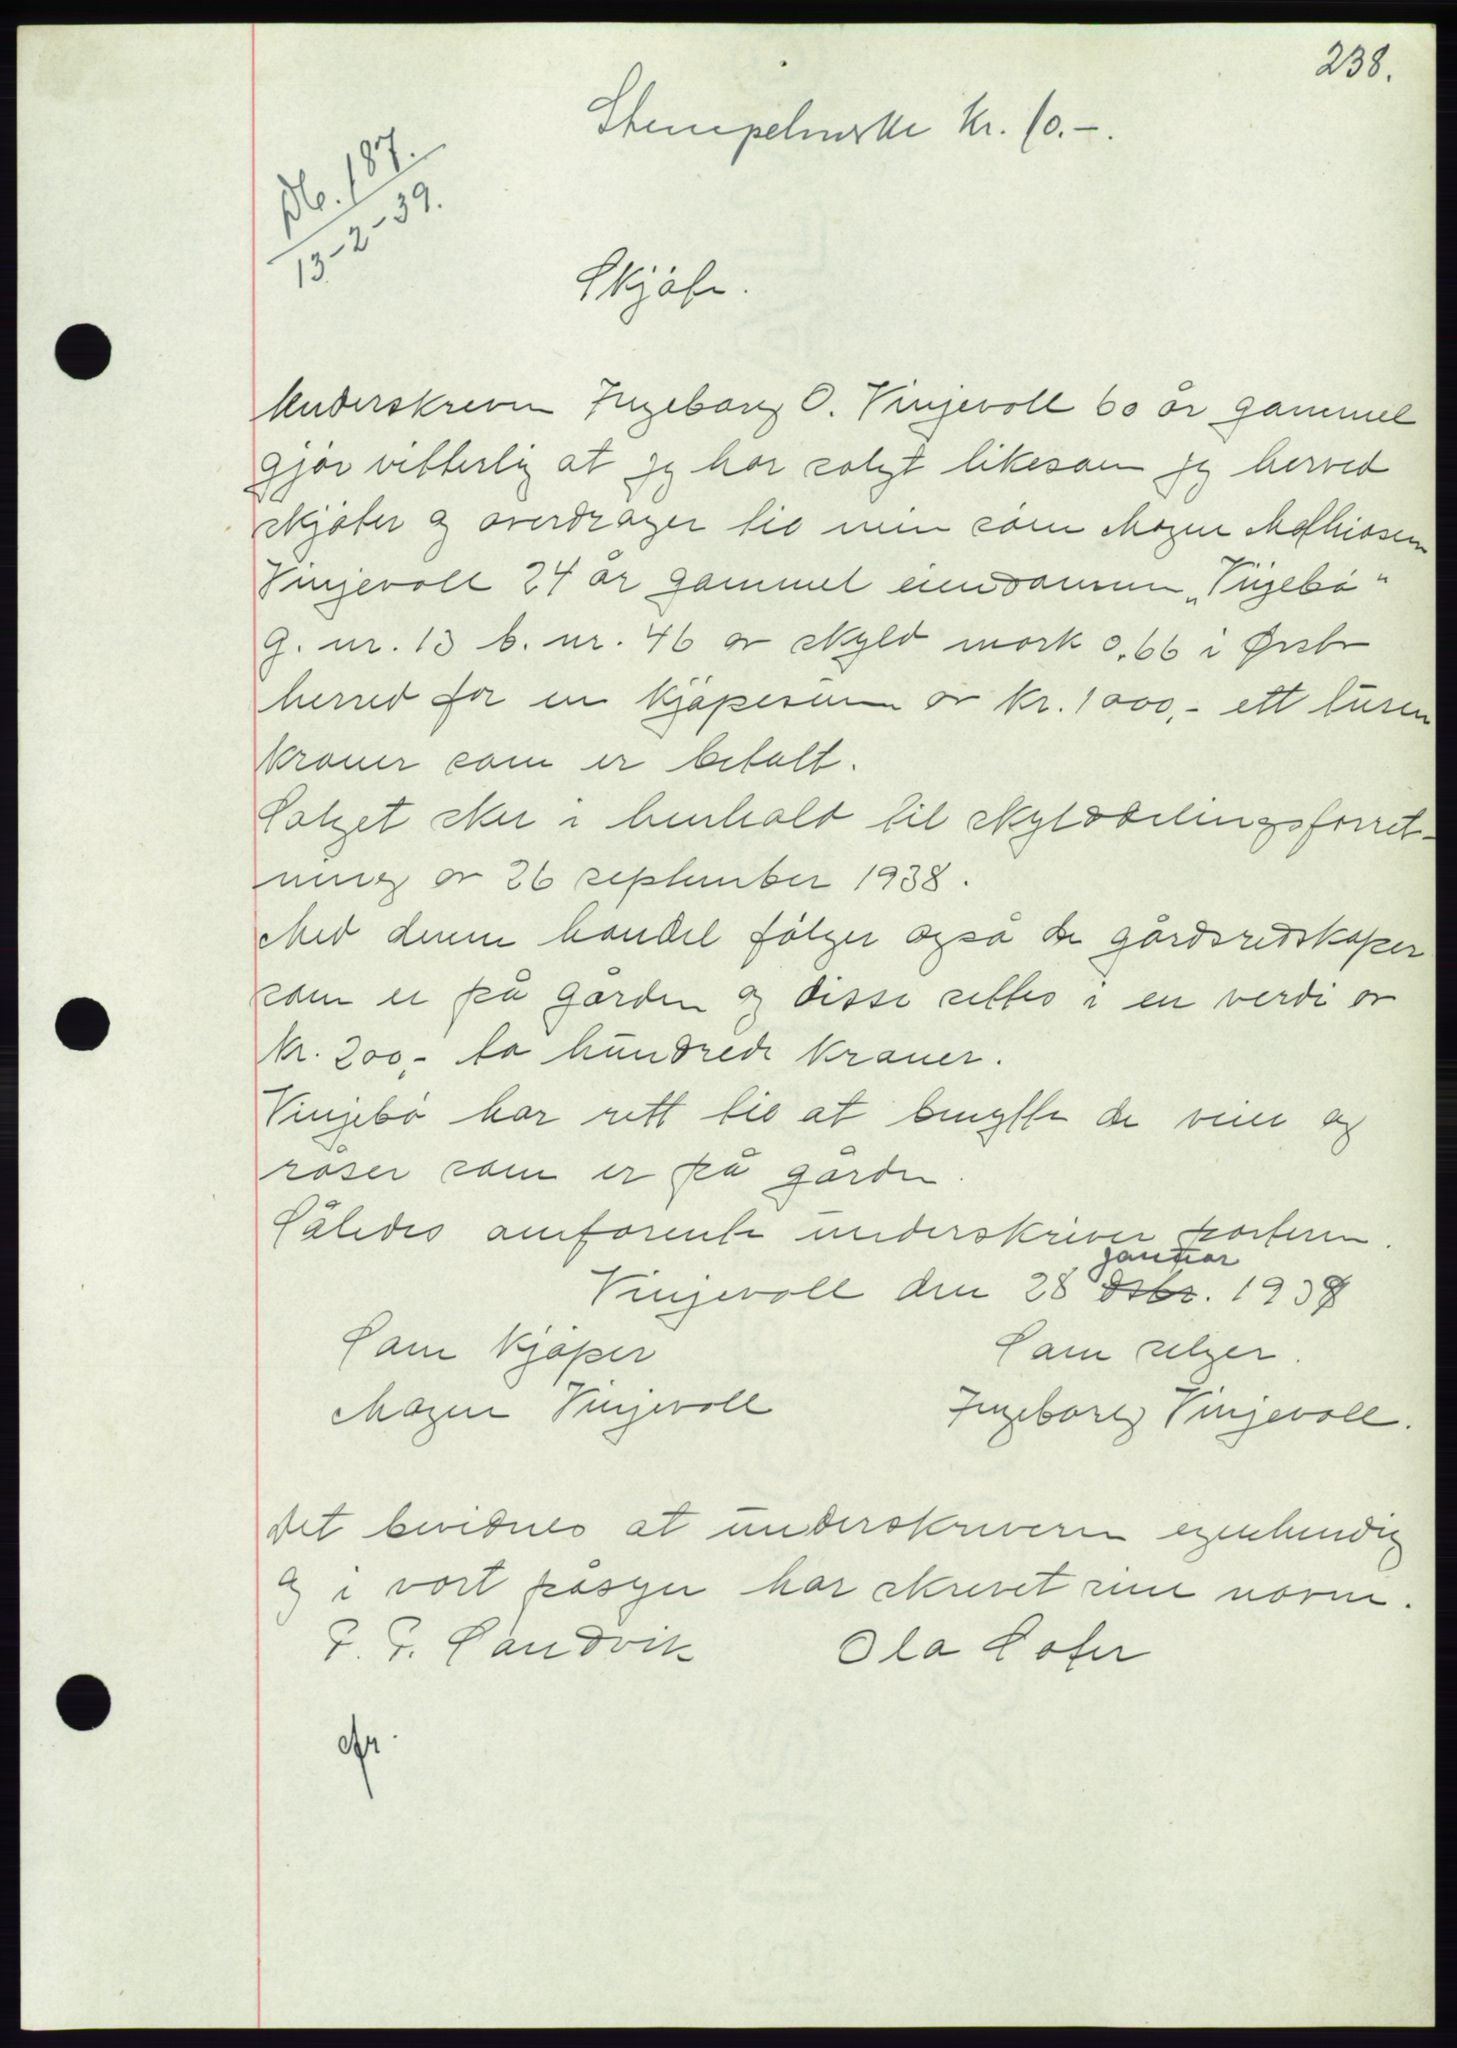 238.
Stempelmerke kr. 10.-.
Db. 187.
13-2-39.
Skjøte.
Underskreven Ingeborg O. Vinjevoll 60 år gammel
gjør vitterlig at jeg har solgt likesom jeg herved
skjøter og overdrager til min sønn Mogen Mathiasen
Vinjevoll 24 år gammel eiendommen „Vinjebø"
g. nr. 13 b. nr. 46 av skyld mark 0.66 i Ørsta
herred for en kjøpesum av kr. 1000,- ett tusen
kroner som er betalt.
Salget sker i henhold til skylddelingsforret-
ning av 26 september 1938.
Med denne handel følger også de gårdsredskaper
som er på gården og disse settes i en verdi av
kr. 200,- to hundrede kroner.
Vinjebø har rett til at benytte de veier og
råser som er på gården.
Således omforente underskriver partene.
januar
Vinjevoll den 28 dsbr. 1939
Som kjøper Som selger.
Mogen Vinjevoll Ingeborg Vinjevoll.
Det bevidnes at underskriverne egenhendig
og i vort påsyn har skrevet sine navne.
P. P. Sandvik Ola Sæter